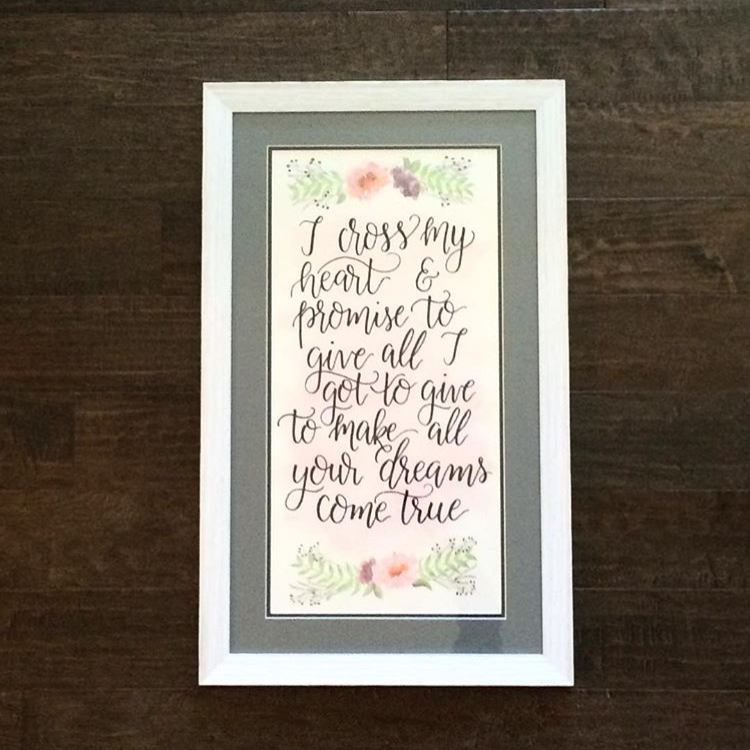 I cross my
heart &
promise to
give all I
got to give
to make all
your dreams
come true